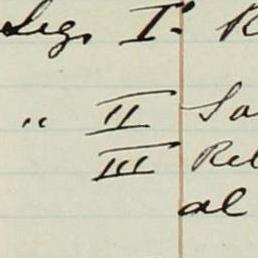 Seg. I. R
" II Sa
III Rel
al